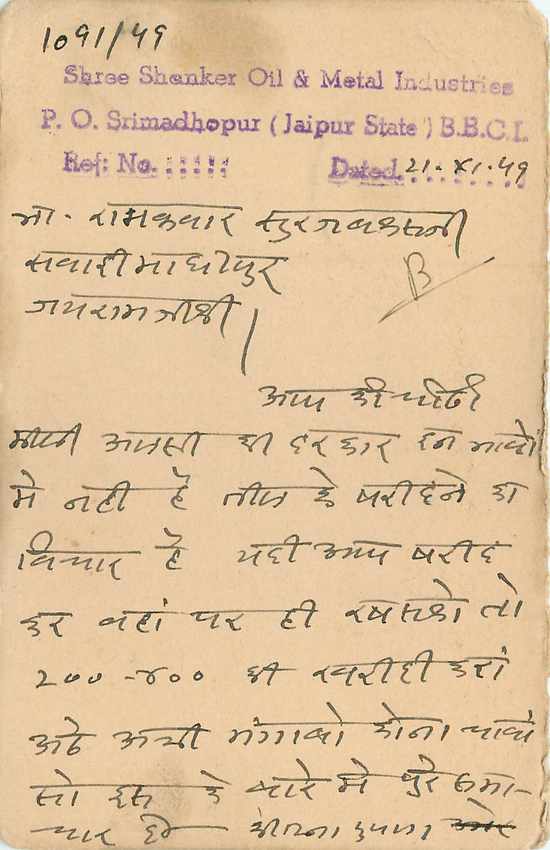 1091/49
Shree Shanker Oil & Metal Industries
P. O. Srimadhopur (Jaipur State) B.B.C.I.
Ref: No. :::::: Dated 21-XI-49
भा. रामकवार सुरजबकसजी
सवाईमाधोपुर
जयरामजीकी।
B
आप की चीठी
मीली अलसी की दरकार इन भावों
मे नही है तील के षरीदने का
विचार है यदी आप षरीद
कर वहां पर ही रष सको तो
२०० -४०० की खरीदी करां
अठे अभी मंगाबो
सो इस के बारे मे पुरे समा-
चार